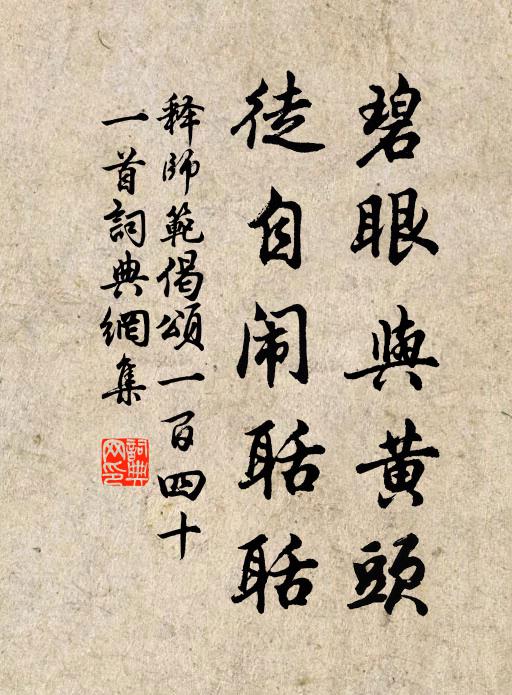 碧眼與黄頭
徒自闹聒聒
释師範偈頌一百四十
一首詞典網集
詞典網印